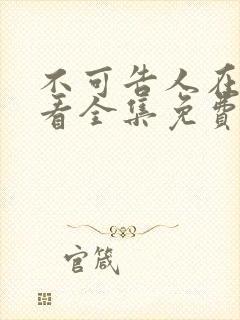 不可告人在
看全集免费
官箴